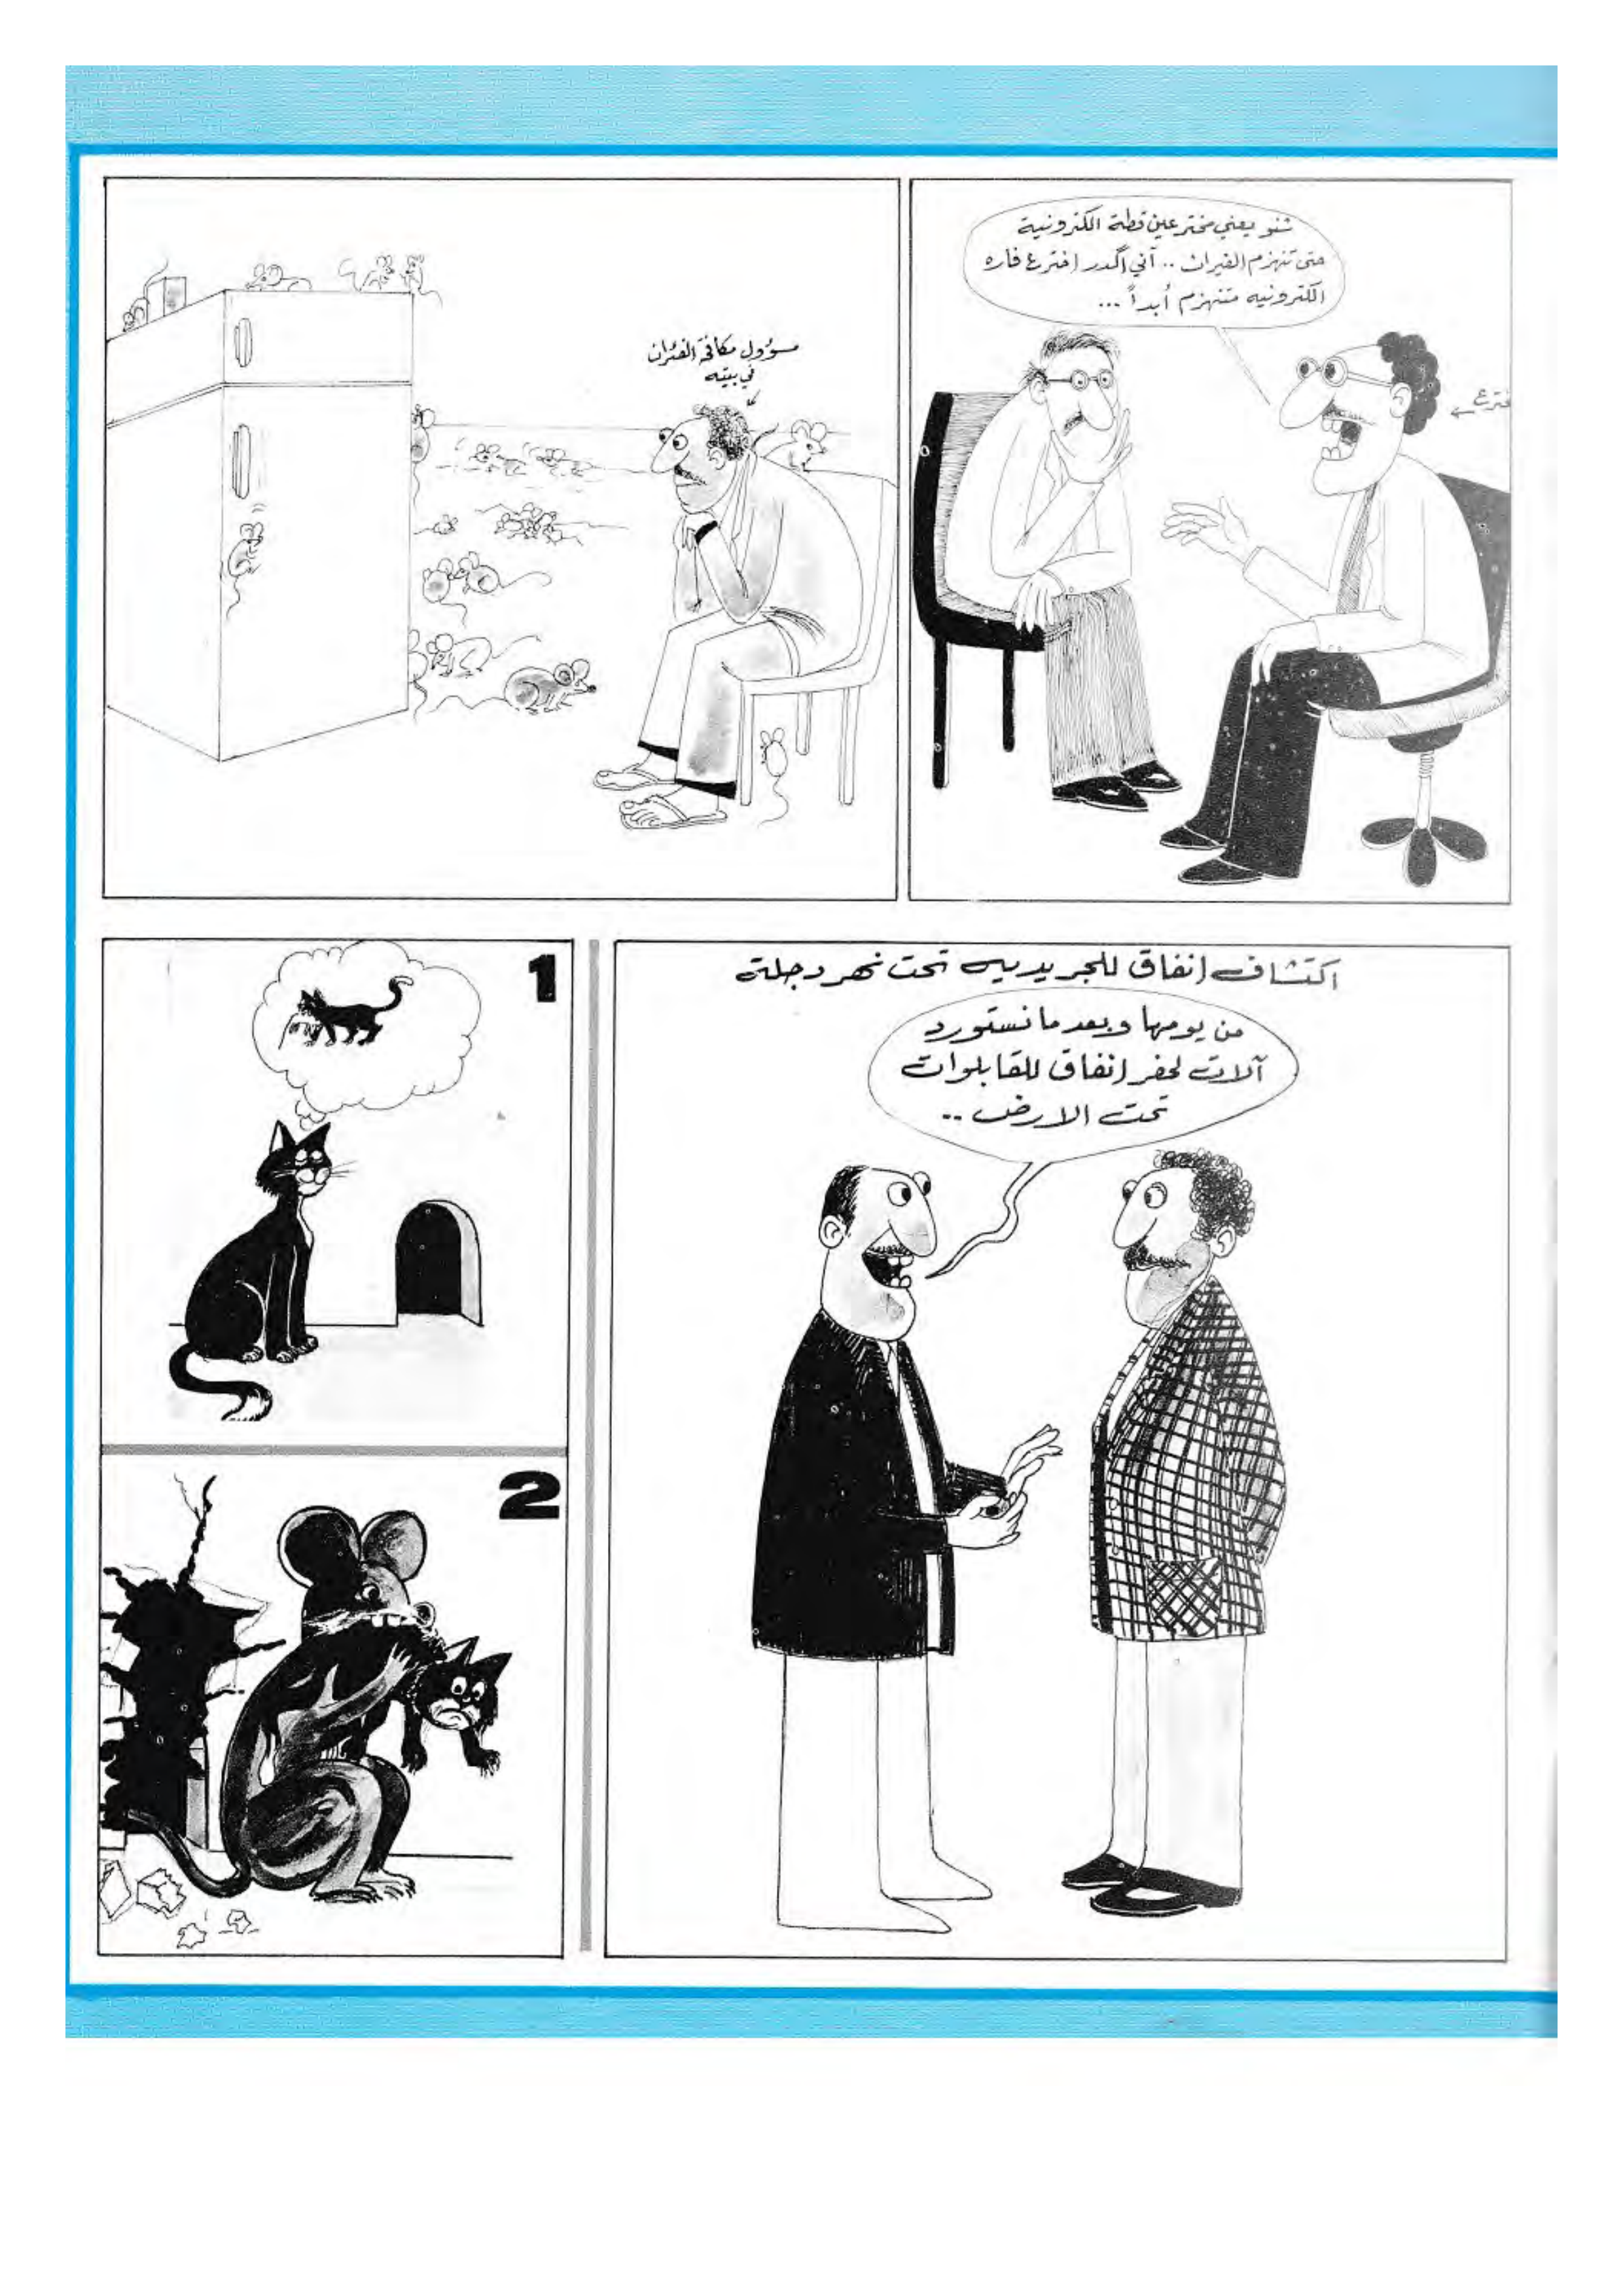 شنو يعني مخترعين قطة الكترونية
حتى تنهزم الفيران .. آني اگدر اخترع فاره
الكترونيه متنهزم أبداً ...
مسؤول مكافحة الفئران
في بيته
1
اكتشاف انفاق للجريديه تحت نهر دجلة
من يومها وبعد ما نستورد
آلات لحفر انفاق للقابلوات
تحت الارض ..
2